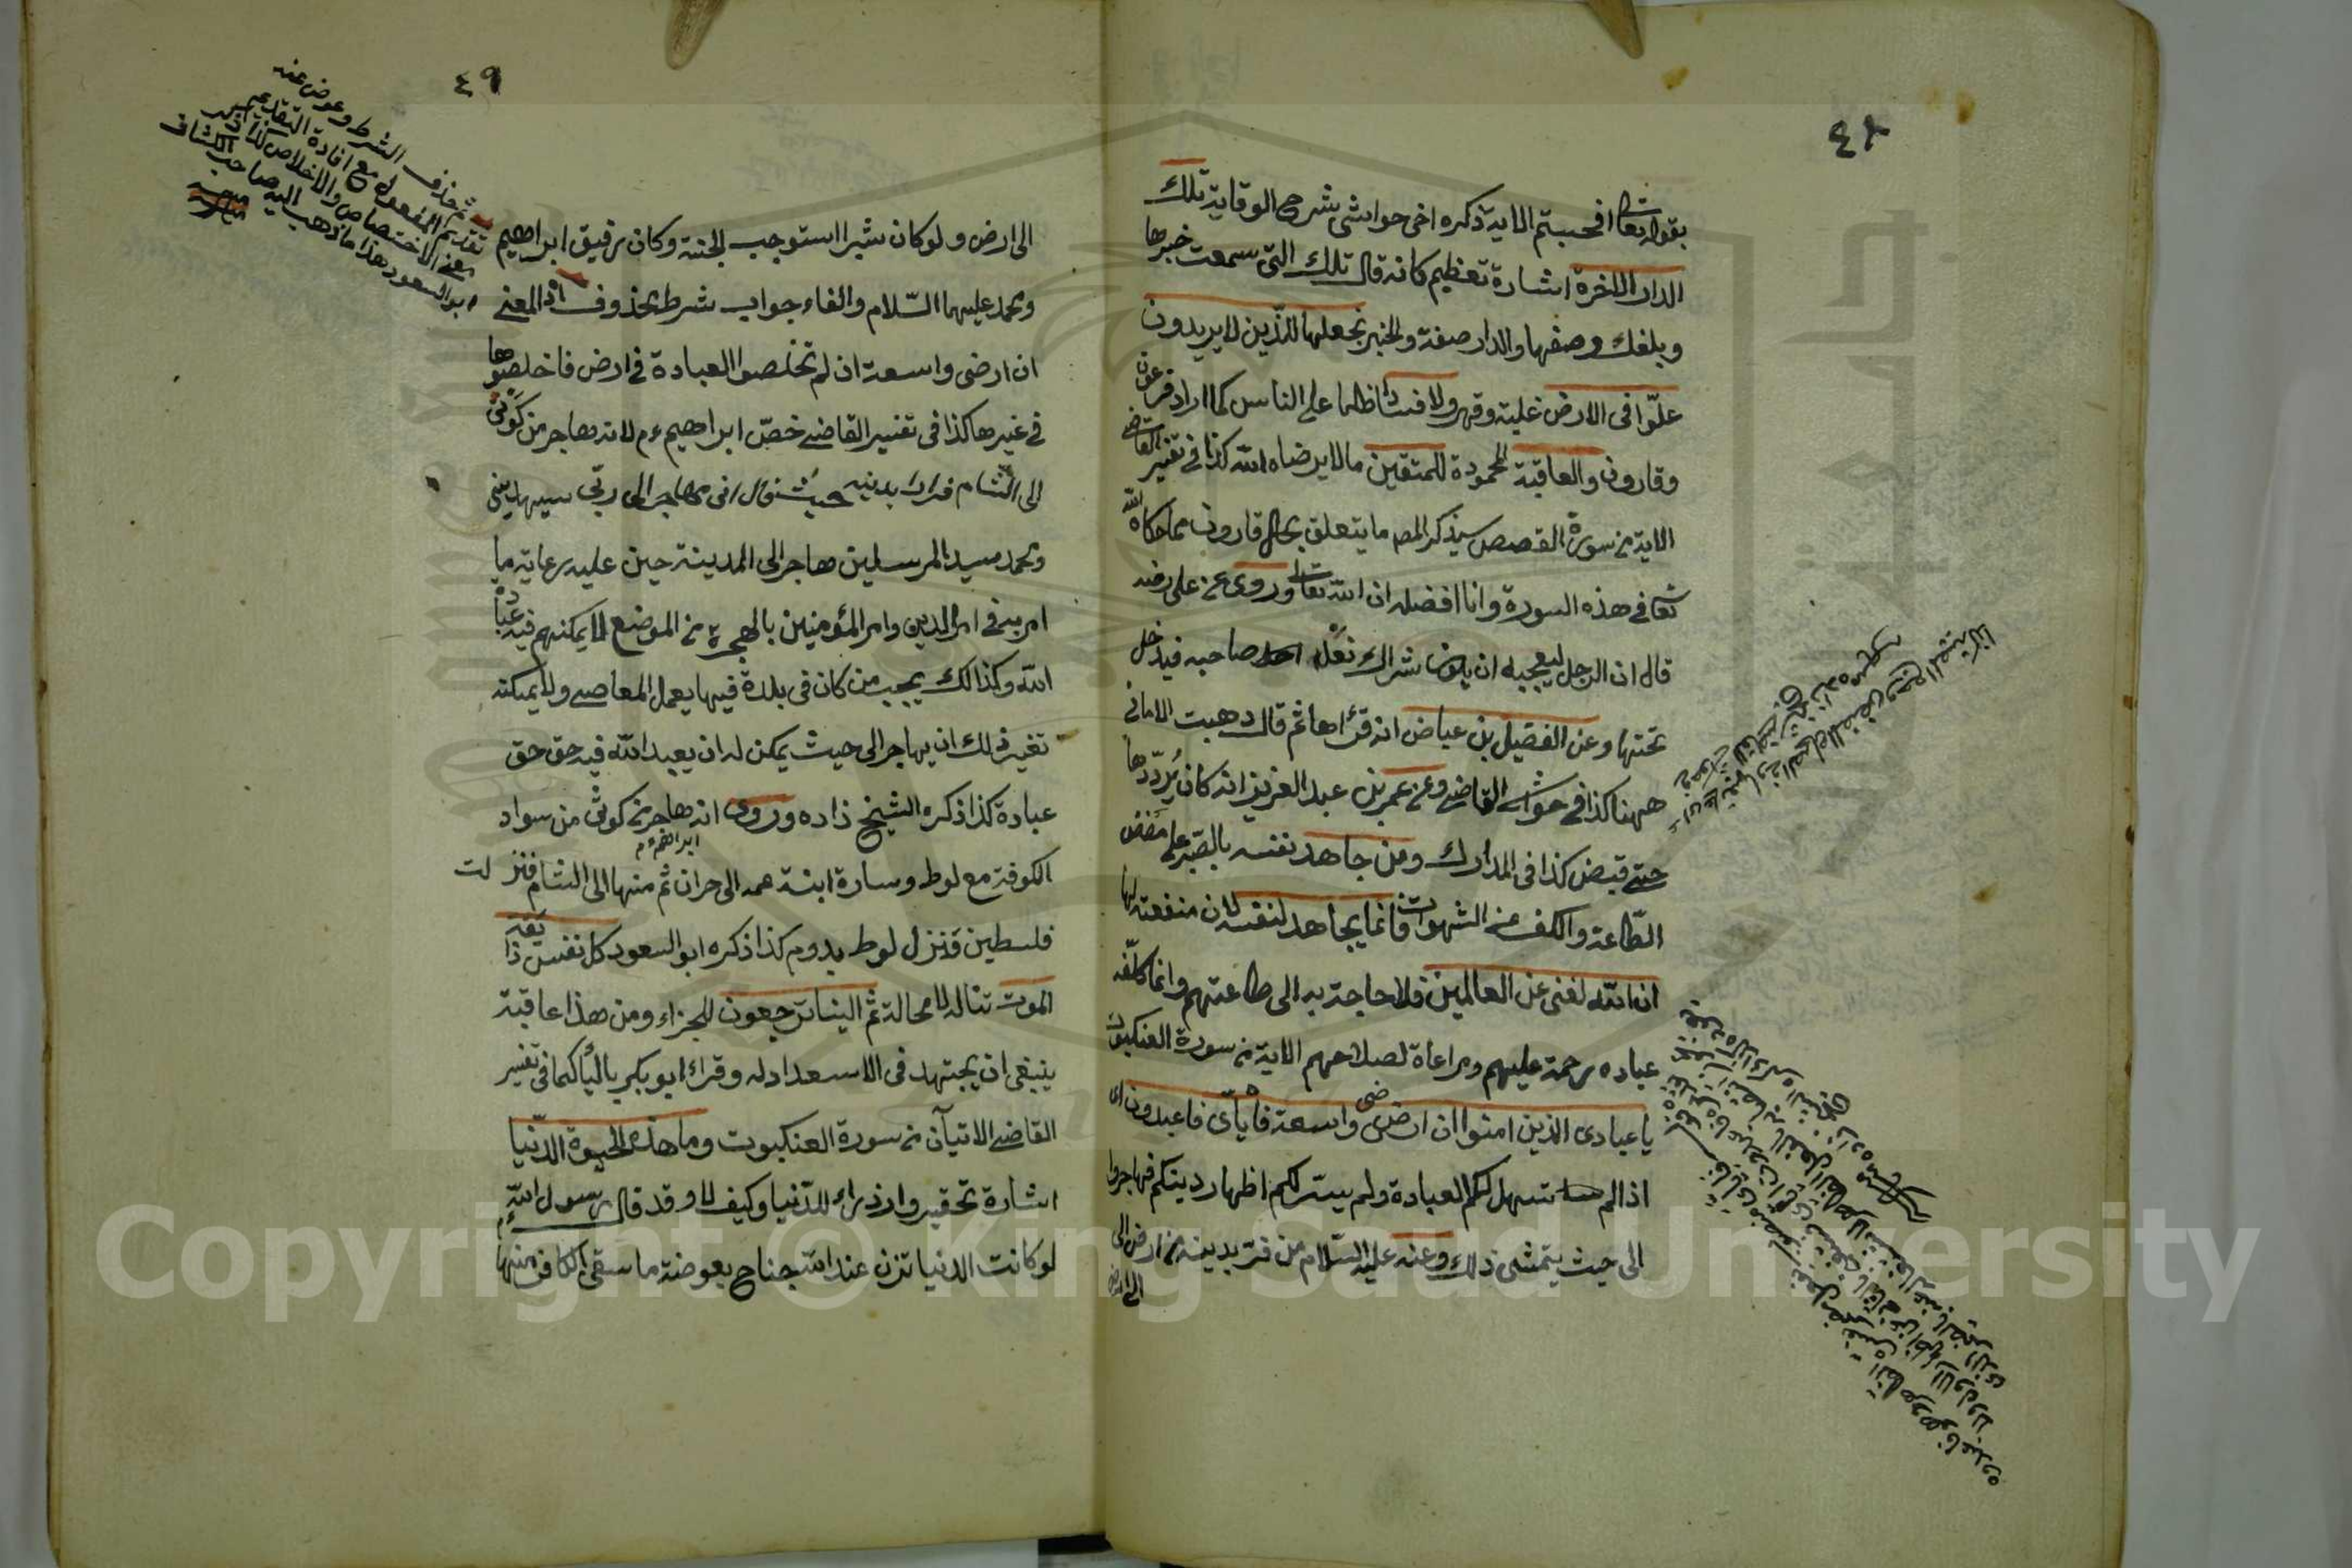 ٤٨
بقوله تعالى افحسبتم الاية ذكره اخى حواشى شرح الوقاية تلك
الدار الاخرة اشارة تعظيم كانه قال تلك التى سمعت خبرها
وبلغك وصفها والدار صفة والخبر نجعلها للذين لا يريدون
علوا فى الارض غلبة وقهر ولا فسادا ظلما على الناس كما اراد فرعون
وقارون والعاقبة المحمودة للمتقين مالا يرضاه الله كذا فى تفسير القاضى
الاية من سورة القصص سيذكر المص ما يتعلق بحال قارون مما حكاه الله
تعا فى هذه السورة وانا افضله ان الله تعالى وروى عن على رضه
قال ان الرجل ليعجبه ان يكون شراك نعل صاحبه فيدخل
تحتها وعن الفضيل بن عياض انه قرأها ثم قال ذهبت الامانى
ههنا كذا فى حواشى القاضى وعن عمر بن عبد العزيز انه كان يرددها
حتى قبض كذا فى المدارك ومن جاهد نفسه بالصبر على مضض
الطاعة والكف عن الشهوات فانما يجاهد لنفسه لان منفعته لها
ان الله لغنى عن العالمين فلا حاجة به الى طاعتهم وانما كلف
عباده رحمة عليهم ومراعاة لصلاحهم الاية من سورة العنكبوت
يا عبادى الذين امنوا ان ارضى واسعة فاياى فاعبدون اى
اذا لم تسهل لكم العبادة ولم يتيسر لكم اظهار دينكم فهاجروا
الى حيث يتمشى ذلك وعنه عليه السلام من فر بدينه من ارض الى
الى ارض
٤٩
الى ارض ولو كان شبرا استوجب الجنة وكان رفيق ابراهيم
ومحمد عليهما السلام والفاء جواب شرط محذوف اذ المعنى
ان ارضى واسعة ان لم تخلصوا العبادة فى ارض فاخلصوها
فى غيرها كذا فى تفسير القاضى خص ابراهيم ءم لانه هاجر من كوثى
الى الشام فرارا بدينه حيث قال انى مهاجر الى ربى سيهدينى
ومحمد سيد المرسلين هاجر الى المدينة حين عليه رعاية ما
امر به فى امر الدين وامر المؤمنين بالهجرة من الموضع لا يمكنهم فيه عبادة
الله وكذالك يجب من كان فى بلدة فيها يعمل المعاصى ولا يمكنه
تغير ذلك ان يهاجر الى حيث يمكن له ان يعبد الله فيه حق حق
عبادة كذا ذكره الشيخ ذاده وروى انه هاجر من كوثى من سواد
ابراهيم ءم
الكوفة مع لوط وسارة ابنة عمه الى حران ثم منها الى الشام فنزلت
فلسطين فنزل لوط بدوم كذا ذكره ابو السعود كل نفس ذائقة
الموت تناله لا محالة ثم الينا ترجعون للجزاء ومن هذا عاقبة
ينبغى ان يجتهد فى الاسعداد له وقراء ابو بكر بالياء كما فى تفسير
القاضى الاتيان من سورة العنكبوت وما هذه الحيوة الدنيا
اشارة تحقير وازدراء للدنيا وكيف لا وقد قال رسول الله ءم
لو كانت الدنيا تزن عند الله جناح بعوضة ما سقى الكافر منها
ثم حذف الشرط وعوض عنه
تقديم المفعول مع افادة التقديم
معنى الاختصاص والاخلاص
ابو السعود هذا ما ذهب اليه صاحب الكشاف
Copyright © King Saud University